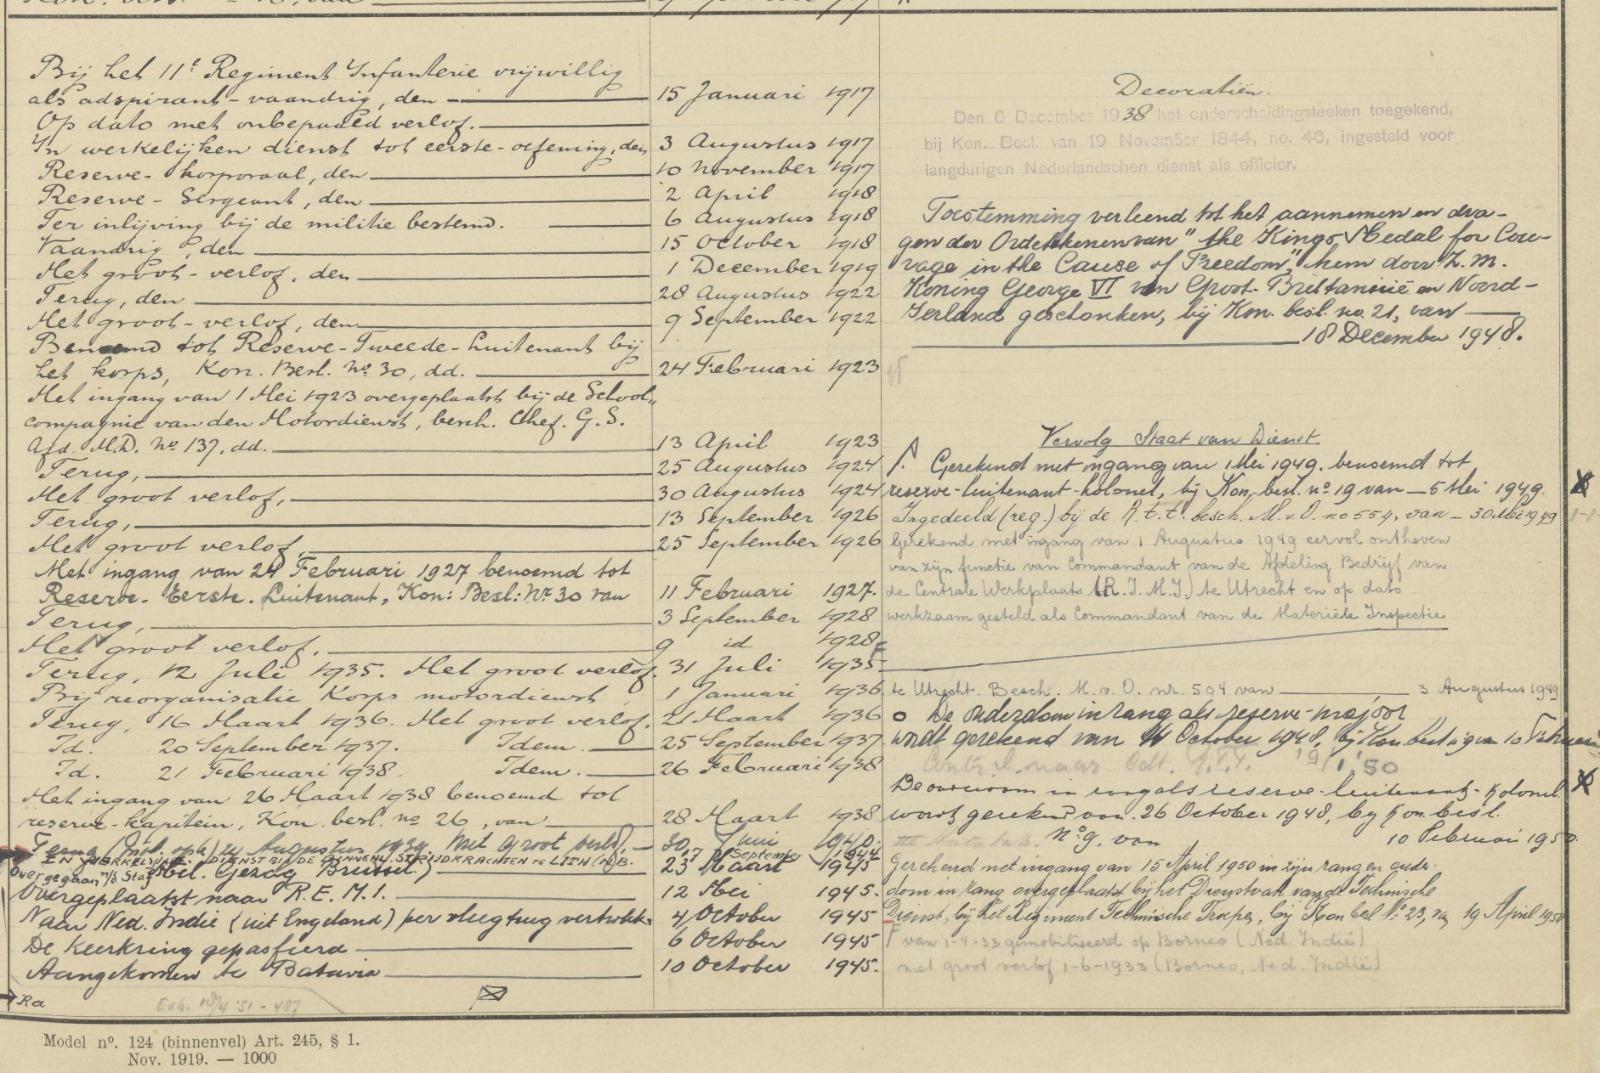 Bij het 11e Regiment Infanterie vrijwillig
als adspirant-vaandrig, den 15 Januari 1917
Op dato met onbepaald verlof.
In werkelijken dienst tot eerste-oefening, den 3 Augustus 1917
Reserve-korporaal, den 10 November 1917
Reserve-Sergeant, den 2 April 1918
Ter inlijving bij de militie bestemd. 6 Augustus 1918
Vaandrig, den 15 October 1918
Met groot-verlof, den 1 December 1919
Terug, den 28 Augustus 1922
Met groot-verlof, den 9 September 1922
Benoemd tot Reserve-Tweede-Luitenant bij
het korps, Kon. Besl. No. 30, dd. 24 Februari 1923
Met ingang van 1 Mei 1923 overgeplaatst bij de School"
compagnie van den Motordienst, besch. Chef. G. S.
Afd. M.D. No 137, dd. 13 April 1923
Terug, 25 Augustus 1924
Met groot verlof, 30 Augustus 1924
Terug, 13 September 1926
Met groot verlof, 25 September 1926
Met ingang van 24 Februari 1927 benoemd tot
Reserve-Eerste-Luitenant, Kon: Besl: No. 30 van 11 Februari 1927.
Terug, 3 September 1928
Met groot verlof. 9 id 1928
Terug, 12 Juli 1935. Met groot verlof. 31 Juli 1935
Bij reorganisatie Korps motordienst 1 Januari 1936
Terug, 16 Maart 1936. Met groot verlof. 21 Maart 1936
Id. 20 September 1937. Idem. 25 September 1937.
Id. 21 Februari 1938. Idem. 26 Februari 1938
Met ingang van 26 Maart 1938 benoemd tot
reserve-kapitein, Kon. besl. no 26, van 28 Maart 1938
Terug Augustus 1939 Met groot verlof, 30 Juni 1940.
EN WERKELIJKE DIENST BIJ DE BINNENL. STRIJDKRACHTEN TE LITH (N)B. 17 September 1944
Overgegaan n/d Staf Mil. Gezag Brussel) 23 Maart 1945
Overgeplaatst naar R.E.M.I. 12 Mei 1945.
Naar Ned. Indië (uit Engeland) per vliegtuig vertrokk. 4 October 1945
De Keerkring gepasseerd 6 October 1945
Aangekomen te Batavia 10 October 1945.
Ra
Decoratiën.
Den 6 December 1938 het onderscheidingsteeken toegekend,
bij Kon. Besl. van 19 November 1844, no. 46, ingesteld voor
langdurigen Nederlandschen dienst als officier.
Toestemming verleend tot het aannemen en dra-
gen der Ordetekenen van "the Kings Medal for Cou-
rage in the Cause of Freedom", hem door Z. M.
Koning George VI van Groot-Brittannië en Noord-
Ierland geschonken, bij Kon. besl. no. 21, van
18 December 1948.
Vervolg Staat van Dienst.
Gerekend met ingang van 1 Mei 1949. benoemd tot
reserve-luitenant-kolonel, bij Kon. besl. no 19 van 5 Mei 1949.
Ingedeeld (reg.) bij de R.t.t. besch. M.v.O. no 554, van 30 Mei 1949
Gerekend met ingang van 1 Augustus 1949 eervol ontheven
van zijn functie van Commandant van de Afdeling Bedrijf van
de Centrale Werkplaats (R.I.M.I.) te Utrecht en op dato
werkzaam gesteld als Commandant van de Materiële Inspectie
te Utrecht. Besch. M. v. O. nr. 594 van 3 Augustus 1949
De ouderdom in rang als reserve-majoor
wordt gerekend van October 1948, bij Kon. besl. 9 van 10 Februari
1950
De ouderdom in rang als reserve-luitenant-kolonel
wordt gerekend van 26 October 1948, bij Kon. besl.
no 9. van 10 Februari 1950.
Gerekend met ingang van 15 April 1950 in zijn rang en ouder-
dom in rang overgeplaatst bij het Dienstvak van de Technische
Dienst, bij het Regiment Technische Troepen, bij Kon besl No 23, van 19 April 1950
van 1-4-33 gemobiliseerd op Borneo (Ned. Indië)
met groot verlof 1-6-1933 (Borneo, Ned. Indië)
Model no. 124 (binnenvel) Art. 245, § 1.
Nov. 1919. — 1000